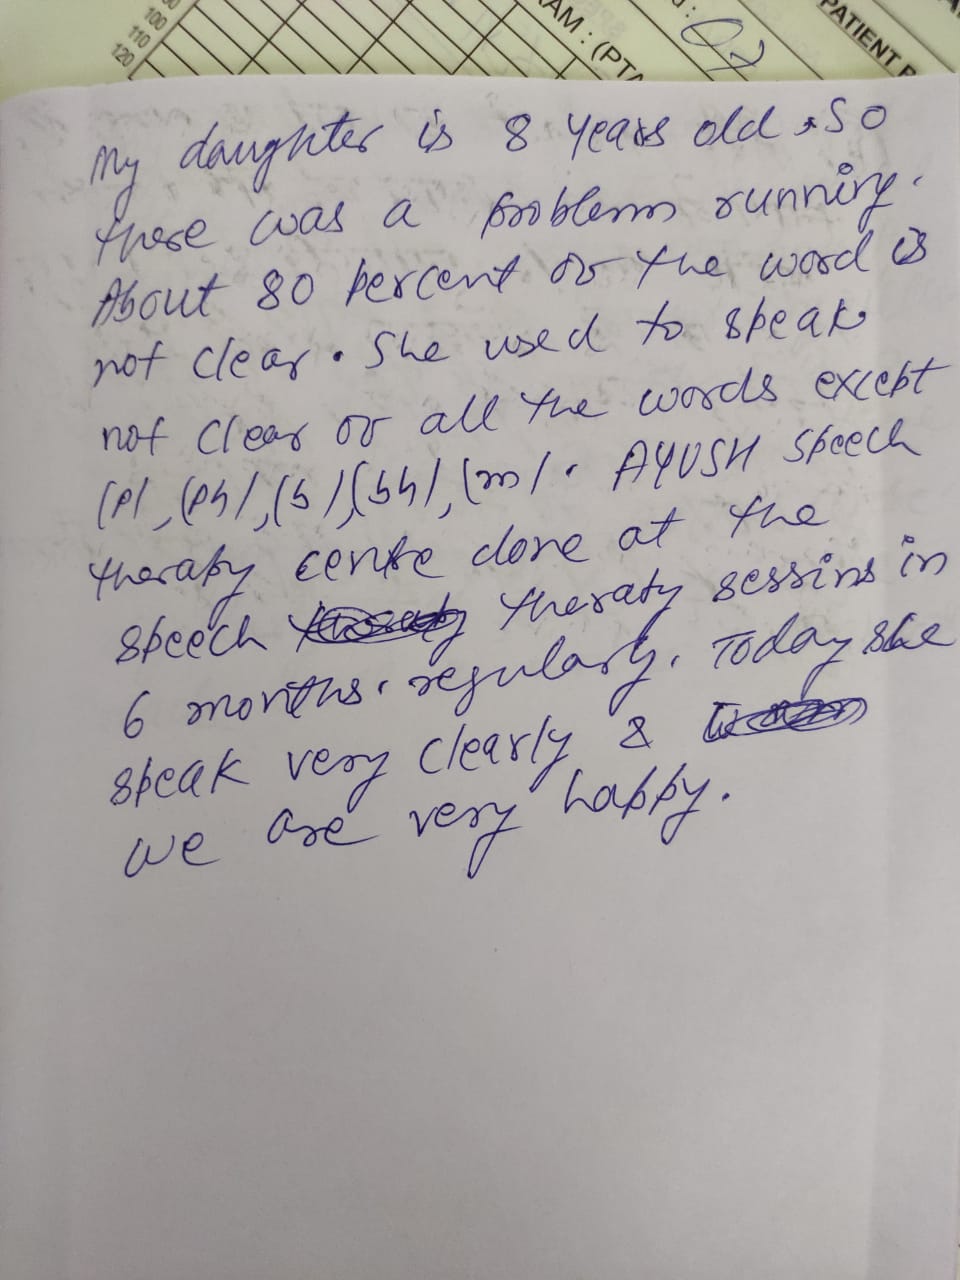 100
110
120
AM : (PTA
PATIENT
My daughter is 8 years old . So
there was a problem running.
About 80 percent of the word is
not clear. She used to speak
not clear of all the words except
/p/, /ph/, /b/, /bh/, /m/. AYUSH speech
therapy centre done at the
speech therapy sessins in
6 months. regularly. Today she
speak very clearly &
we are very happy.